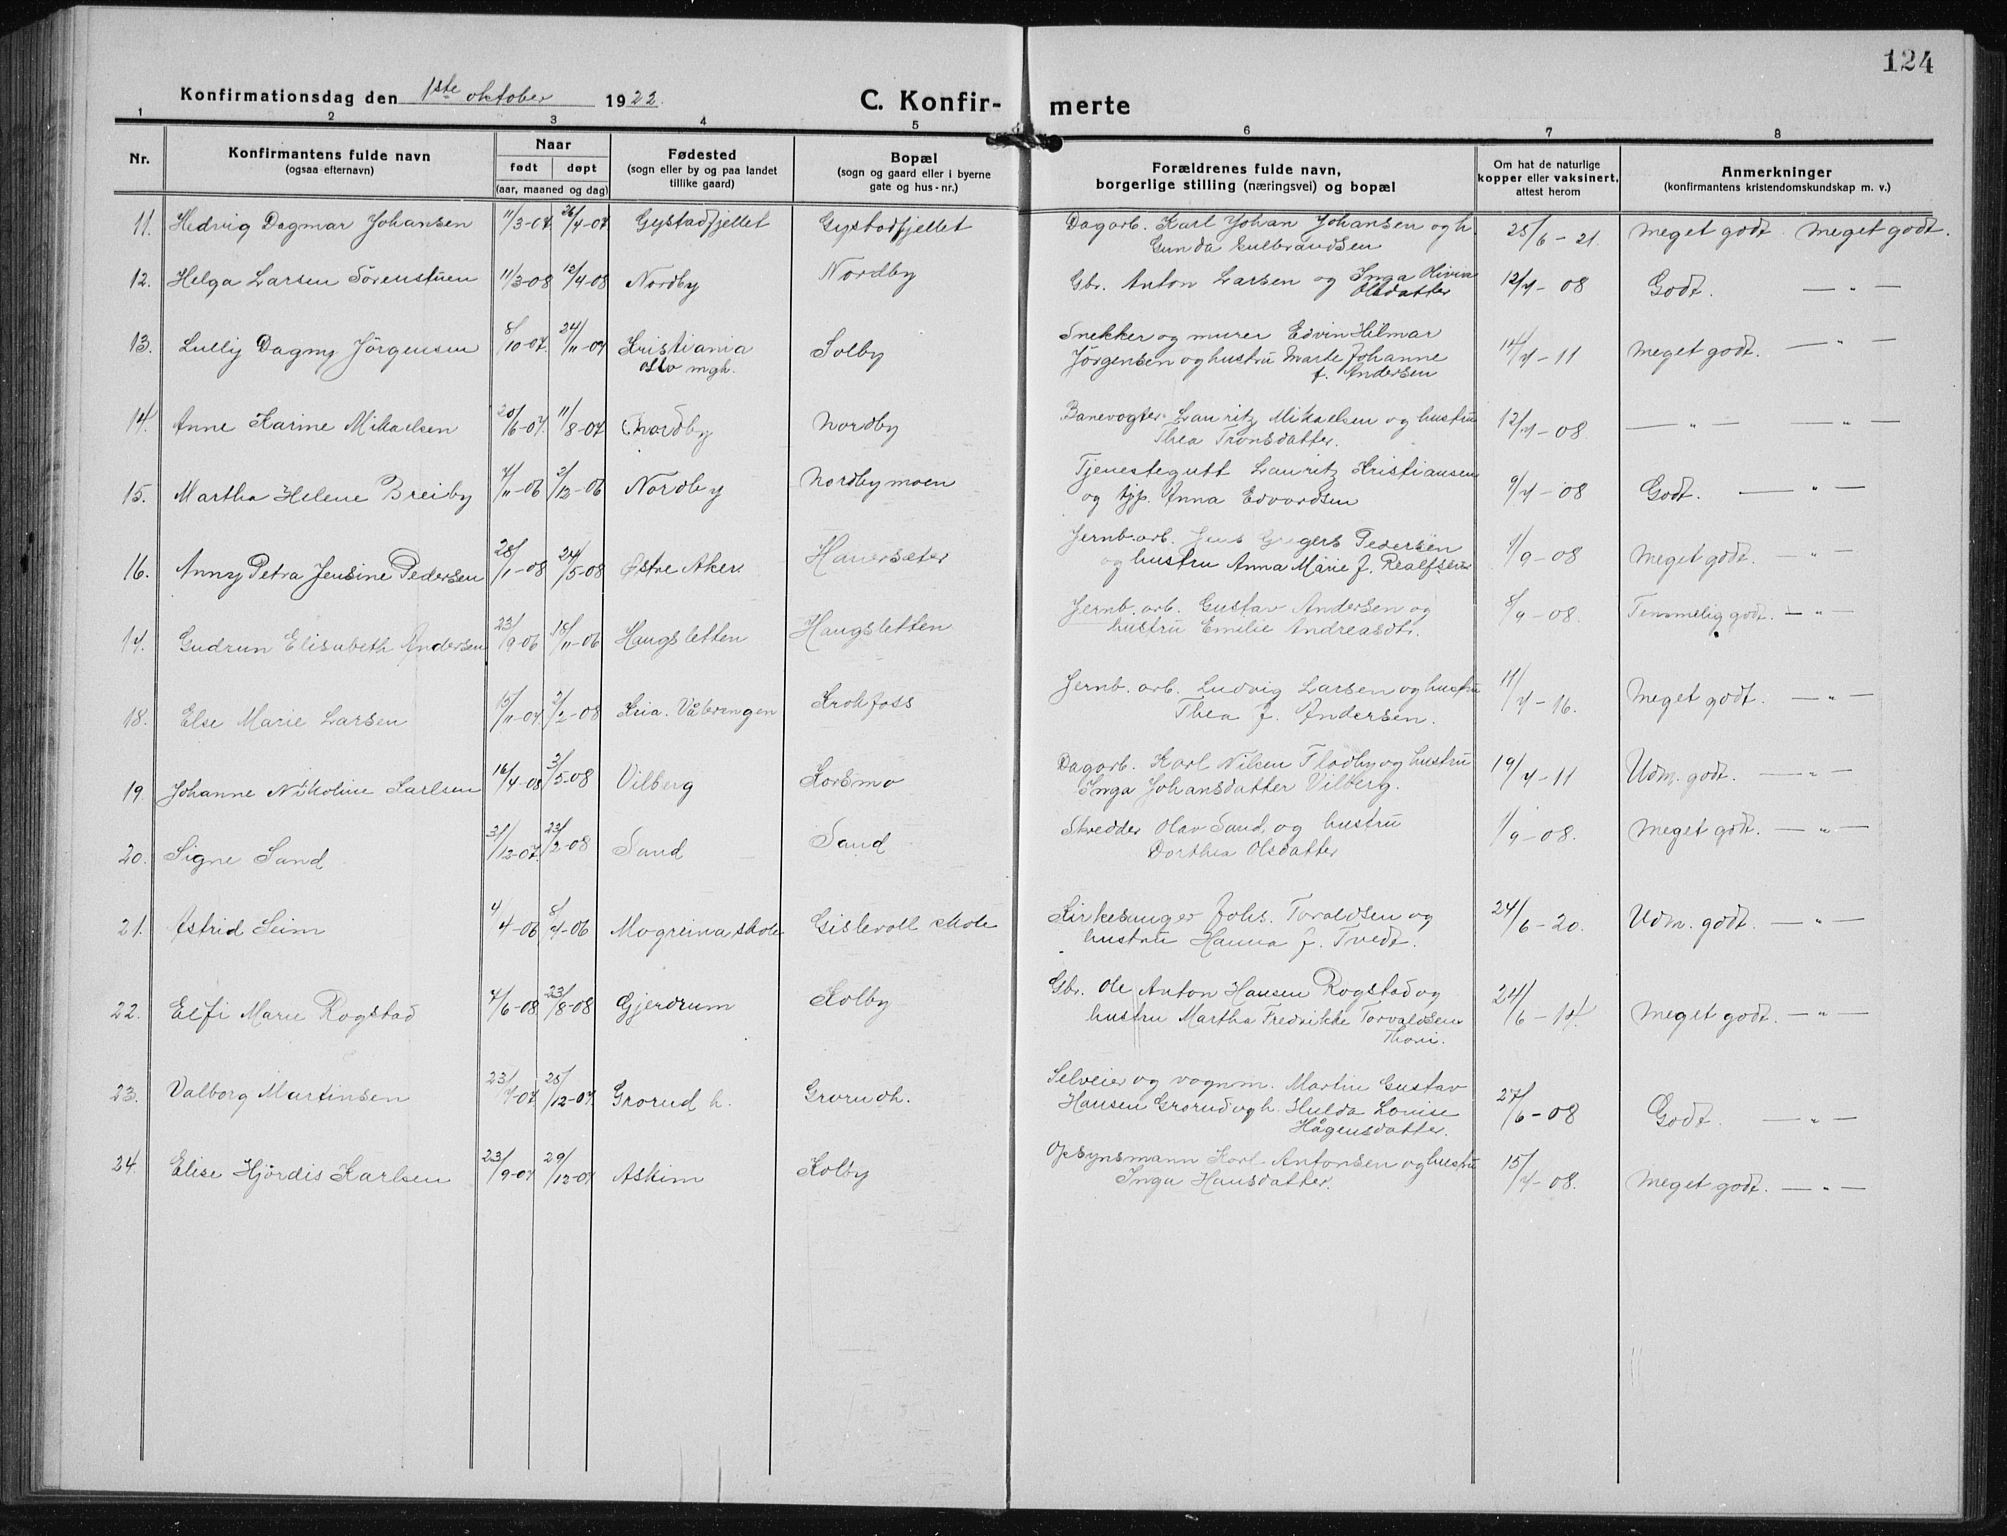 124
Konfirmationsdag den 1ste oktober 1922. C. Konfir- merte
1 2 3 4 5 6 7 8
Nr. Konfirmantens fulde navn (ogsaa efternavn) Naar født døpt (aar, maaned og dag) Fødested (sogn eller by og paa landet tillike gaard) Bopæl (sogn og gaard eller i byerne gate og hus-nr.) Forældrenes fulde navn, borgerlige stilling (næringsvei) og bopæl Om hat de naturlige kopper eller vaksinert, attest herom Anmerkninger (konfirmantens kristendomskundskap m. v.)
11. Hedvig Dagmar Johansen 11/3-07. 26/4-07 Gystadfjellet Gystadfjellet Dagarb. Karl Johan Johansen og h. 25/6-21. Meget godt. Meget godt.
Gunda Gulbrandsen
12. Helga Larsen Sörenstuen 11/3-08 12/4-08 Nordby Nordby Gbr. Anton Larsen og Inga Olivia 12/7-08 Godt. — " —
Olsdatter
13. Lully Dagny Jörgensen 8/10-07. 24/11-07 Kristiania Solby Snekker og murer Edvin Hilmar 14/7-11 Meget godt. — " —
Oslo mgh. Jörgensen og hustru Marte Johanne
f. Andersen
14. Anne Karine Mikaelsen 20/6-07. 11/8-07 Nordby Nordby Banevogter Lauritz Mikaelsen og hustru 12/7-08. — " — — " —
Thea Tronsdatter.
15. Martha Helene Breiby 7/11-06 2/12-06 Nordby Nordbymoen Tjenestegutt Lauritz Kristiansen 9/7-08 Godt. — " —
og tjp. Anna Edvardsen
16. Anny Petra Jensine Pedersen 28/1-08 24/5-08 Østre Aker Hauersæter Jernb.arb. Jens Gregers Pedersen 1/9-08 Meget godt. — " —
og hustru Anna Marie f. Realfsen
17. Gudrun Elisabeth Andersen 23/9-06 18/11-06 Haugsletten Haugsletten Jernb. arb. Gustav Andersen og 8/9-08. Temmelig godt. — " —
hustru Emilie Andreasdt.
18. Else Marie Larsen 15/11-07 2/2-08 Kria. Vålerengen Krokfoss Jernb. arb. Ludvig Larsen og hustru 11/7-16. Meget godt. — " —
Thea f. Andersen.
19. Johanne Nikoline Karlsen 16/4-08 3/5-08 Vilberg Korsmo Dagarb. Karl Nilsen Flodby og hustru 19/7-11 Udm. godt. — " —
Inga Johansdatter Vilberg.
20. Signe Sand 31/12-07 23/2-08 Sand Sand Skredder Olav Sand og hustru 1/9-08. Meget godt. — " —
Dorthea Olsdatter
21. Astrid Seim 4/4-06 8/4-06 Mogreina skole Gislevoll skole Kirkesanger Johs. Toraldsen og 24/6-20. Udm. godt. — " —
hustru Hanna f. Tvedt.
22. Elfi Marie Rogstad 7/6-08 23/8-08 Gjerdrum Kolby Gbr. Ole Anton Hansen Rogstad og 24/6-14. Meget godt. — " —
hustru Martha Fredrikke Torvaldsen
23. Valborg Martinsen 23/7-07 25/12-07. Grorud h. Grorud h. Selveier og vognm. Martin Gustav 27/6-08 Godt. — " —
Hansen Grorud og h. Hulda Lovise
Hågensdatter.
24. Elise Hjördis Karlsen 23/9-07 29/12-07 Askim Kolby Opsynsmann Karl Antonsen og hustru 15/7-08. Meget godt. — " —
Inga Hansdatter.